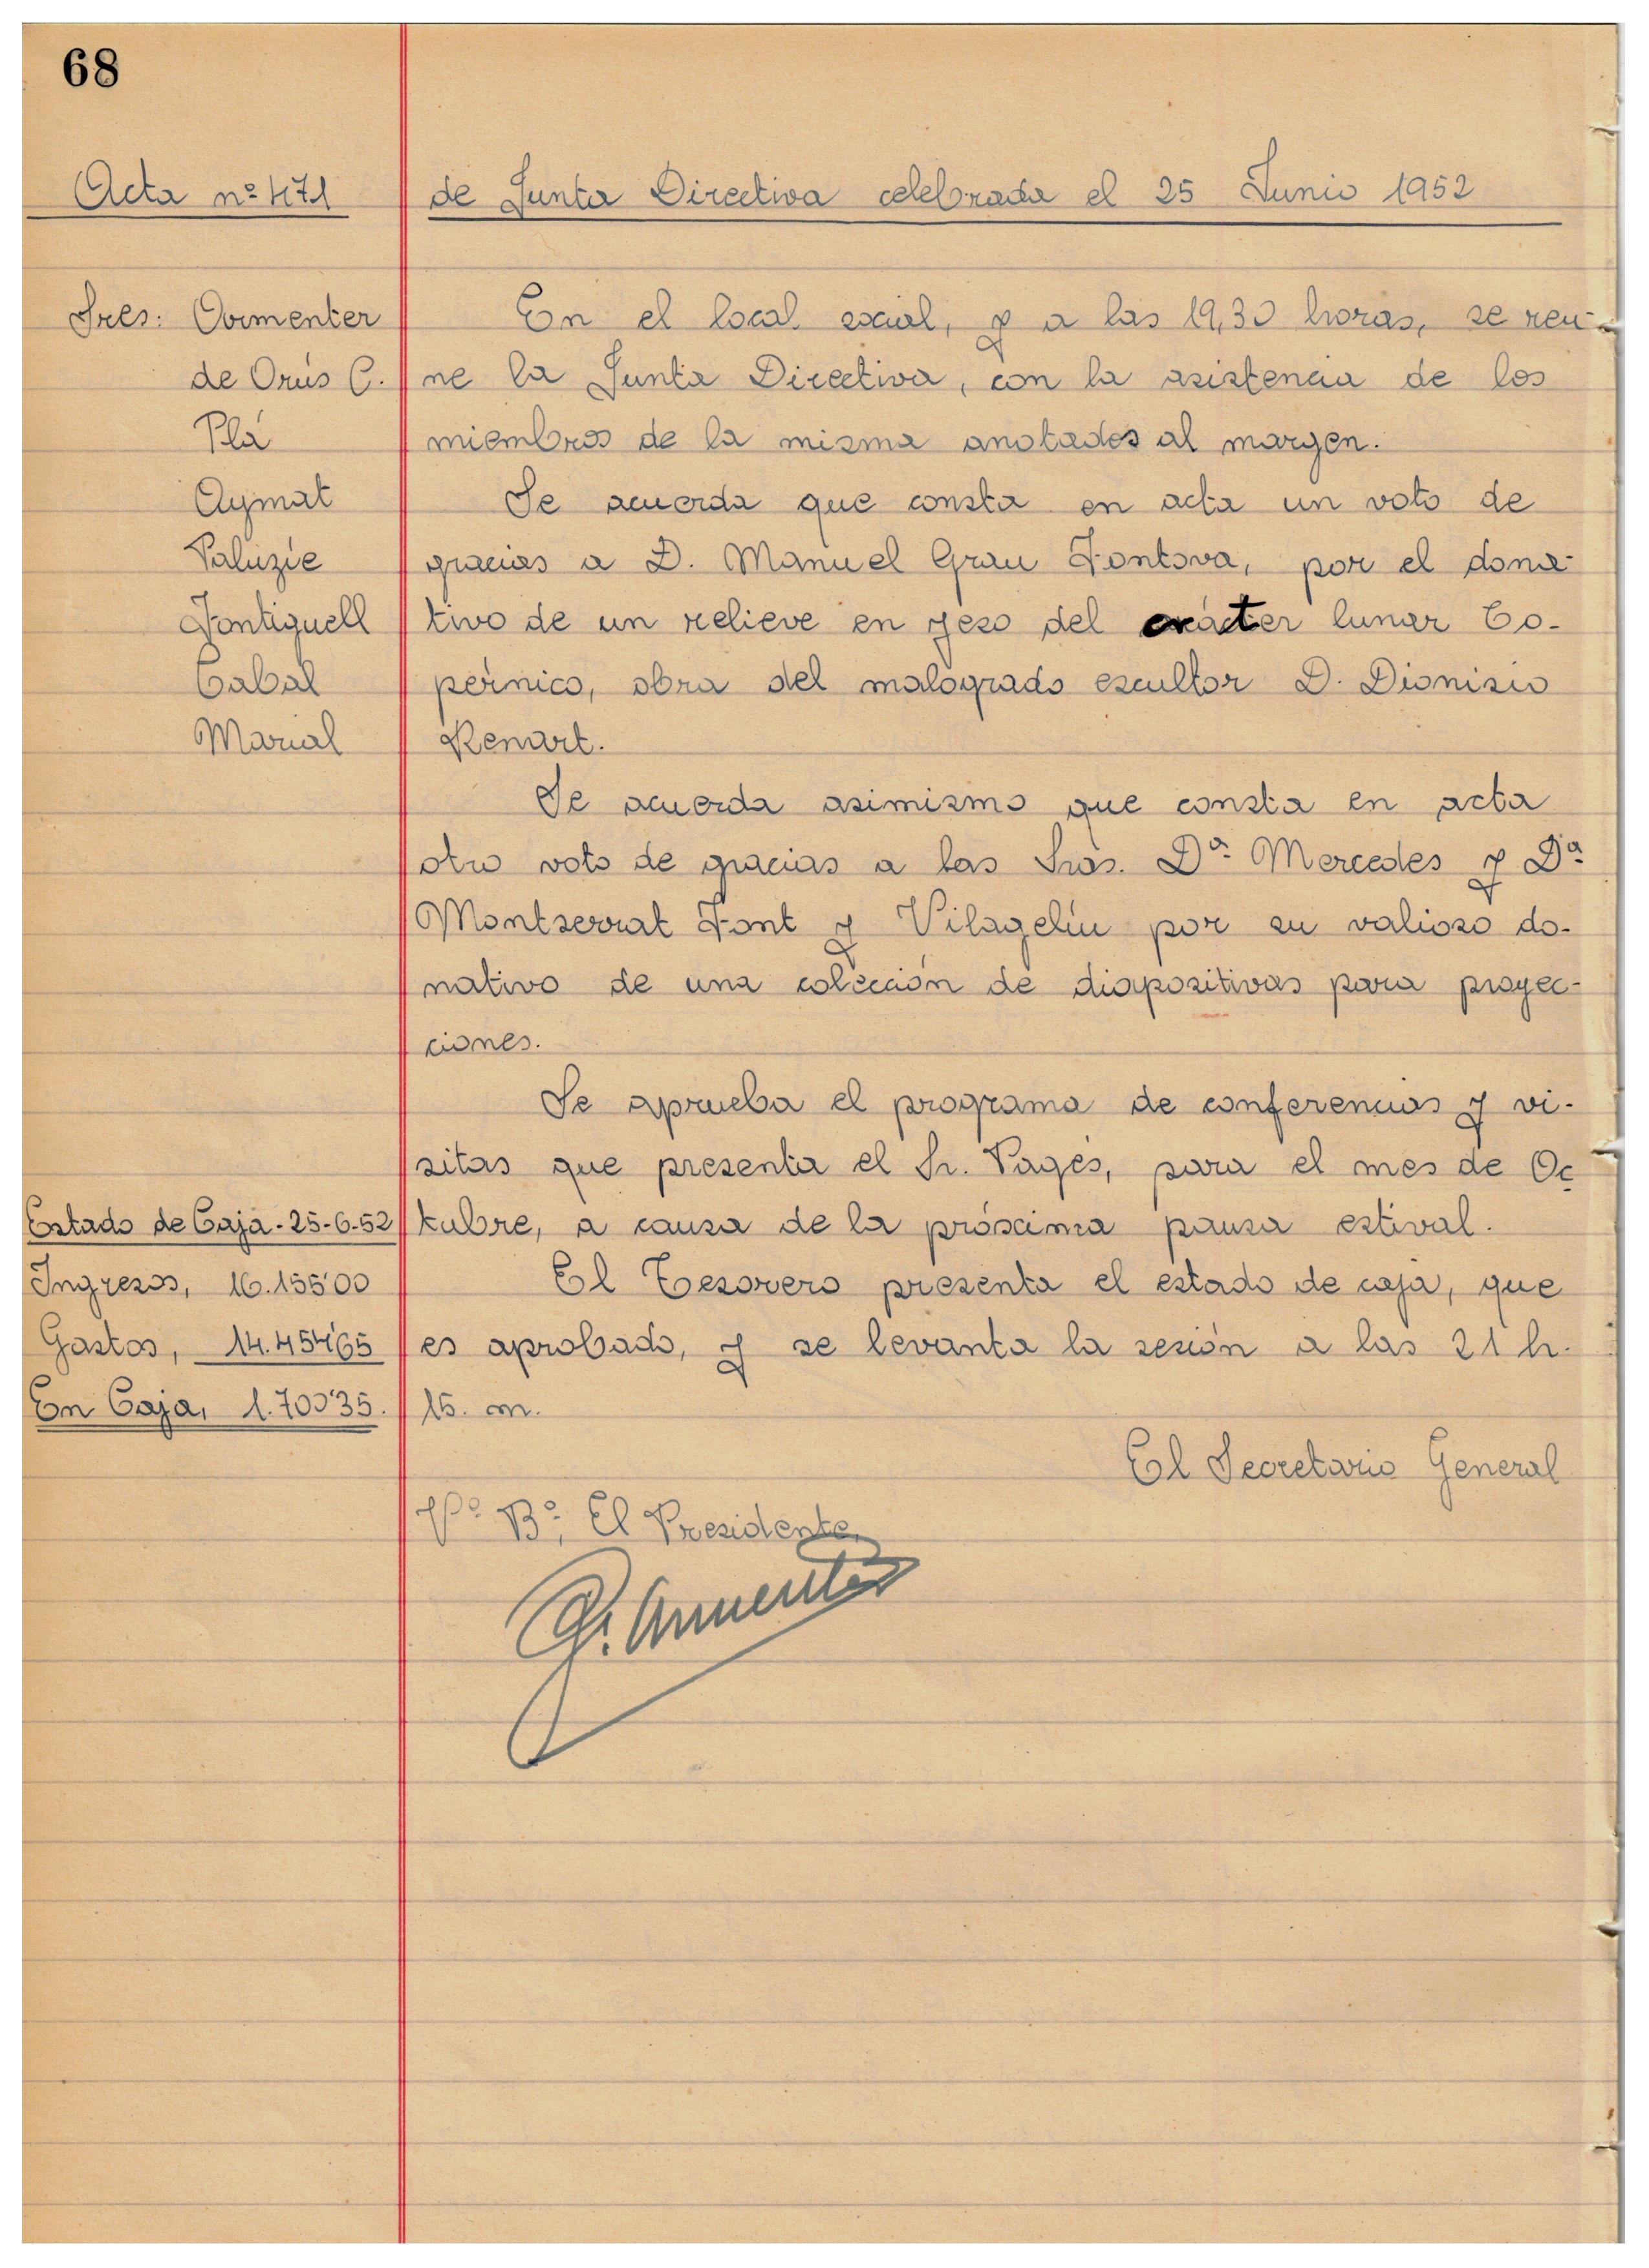 68
Acta nº 471
de Junta Directiva celebrada el 25 Junio 1952
Sres: Armenter
de Orús C.
Plá
Aymat
Paluzie
Fontiguell
Cabal
Marial
En el local social, y a las 19,30 horas, se reu-
ne la Junta Directiva, con la asistencia de los
miembros de la misma anotados al margen.
Se acuerda que consta en acta un voto de
gracias a D. Manuel Grau Fontova, por el dona-
tivo de un relieve en yeso del cráter lunar Co-
pérnico, obra del malogrado escultor D. Dionisio
Renart.
Se acuerda asimismo que consta en acta
otro voto de gracias a las Sras. Dª Mercedes y Dª
Montserrat Font y Vilagelíu por su valioso do-
nativo de una colección de diapositivas para proyec-
ciones.
Se aprueba el programa de conferencias y vi-
sitas que presenta el Sr. Pagés, para el mes de Oc
tubre, a causa de la próxima pausa estival.
El Tesorero presenta el estado de caja, que
es aprobado, y se levanta la sesión a las 21 h.
15. m.
Estado de Caja - 25-6-52
Ingresos, 16.155'00
Gastos, 14.454'65
En Caja, 1.700'35.
El Secretario General
Vº Bº, El Presidente,
R. Armenter